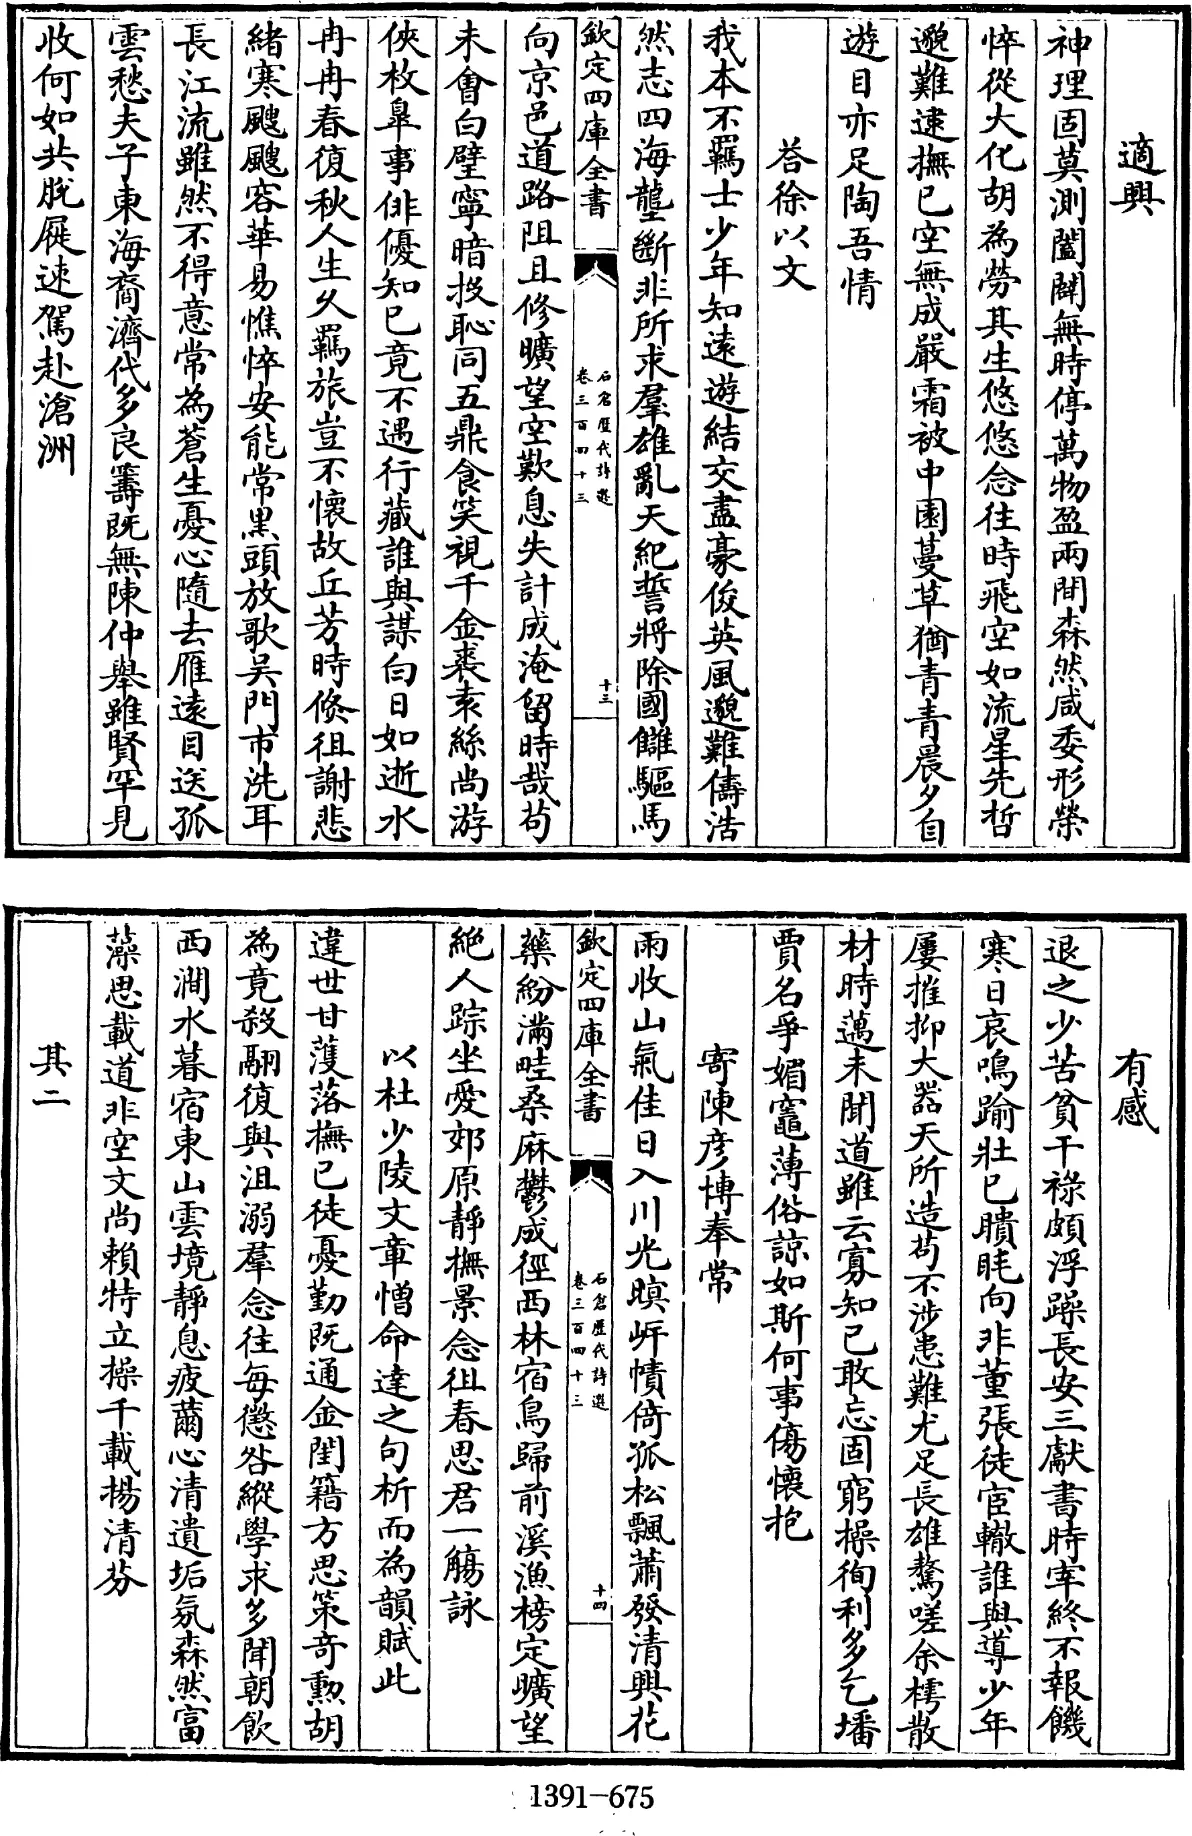 適興
神理固莫測闔闢無時停萬物盈兩間森然咸委形榮
悴從大化胡為勞其生悠悠念往時飛空如流星先哲
邈難逮撫已空無成嚴霜被中園蔓草猶青青晨夕自
遊目亦足陶吾情
答徐以文
我本不羈士少年知遠遊結交盡豪俊英風邈難儔浩
然志四海壟斷非所求羣雄亂天紀誓將除國讎驅馬
欽定四庫全書
石倉歷代詩選
卷三百四十三
十三
向京邑道路阻且修曠望空歎息失計成淹留時哉苟
未會白璧寧暗投恥同五鼎食笑視千金裘素絲尚游
俠枚臯事俳優知已竟不遇行藏誰與謀白日如逝水
冉冉春復秋人生久羈旅豈不懷故丘芳時倐徂謝悲
緒寒颼颼容華易憔悴安能常黑頭放歌吴門市洗耳
長江流雖然不得意常為蒼生憂心隨去雁遠目送孤
雲愁夫子東海裔濟代多良籌既無陳仲舉雖賢罕見
收何如共脫屣速駕赴滄洲
有感
退之少苦貧干祿頗浮躁長安三獻書時宰終不報饑
寒日哀鳴踰壯已瞶眊向非董張徒宦轍誰與導少年
屢摧抑大器天所造苟不涉患難尤足長雄驁嗟余樗散
材時邁未聞道雖云寡知已敢忘固窮操徇利多乞墦
賈名爭媚竈薄俗諒如斯何事傷懷抱
寄陳彦博奉常
雨收山氣佳日入川光暝岸幘倚孤松飄蕭發清興花
欽定四庫全書
石倉歷代詩選
卷三百四十三
十四
藥紛滿畦桑麻鬱成徑西林宿鳥歸前溪漁榜定曠望
絶人踪坐愛郊原靜撫景念徂春思君一觴詠
以杜少陵文章憎命達之句析而為韻賦此
違世甘蒦落撫已徒憂勤既通金閨籍方思策奇勲胡
為竟殺翮復與沮溺羣念往每懲咎縱學求多聞朝飲
西澗水暮宿東山雲境靜息疲薾心清遺垢氛森然富
藻思載道非空文尚賴特立操千載揚清芬
其二
1391-675